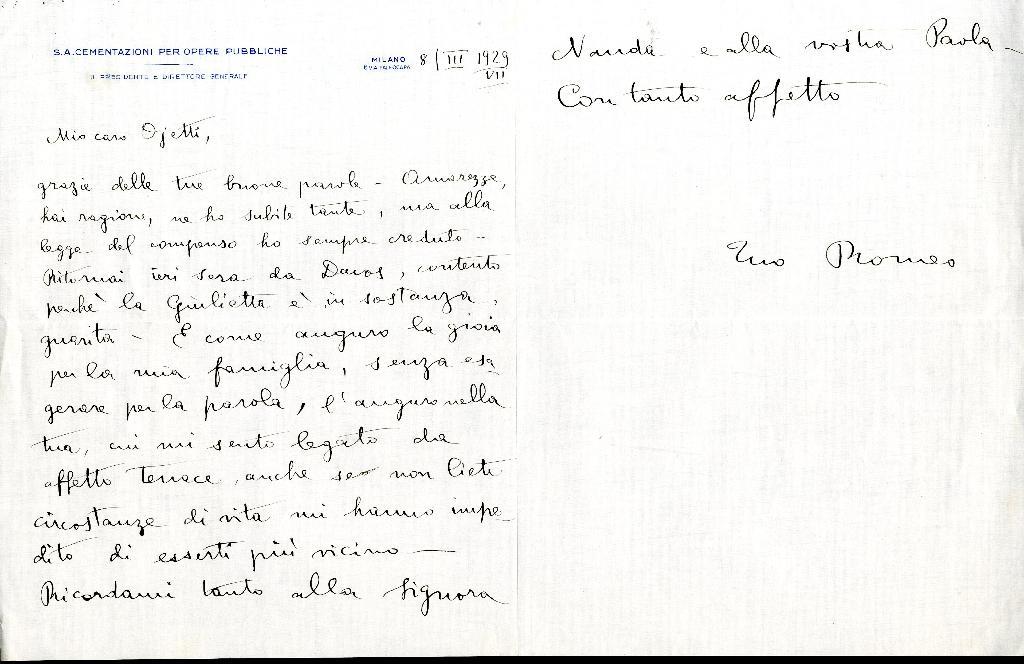 S.A. CEMENTAZIONI PER OPERE PUBBLICHE
IL PRESIDENTE E DIRETTORE GENERALE
MILANO 8/III 1929
VII
Mio caro Ojetti,
grazie delle tue buone parole - Amarezze,
hai ragione, ne ho subite tante, ma alla
legge del compenso ho sempre creduto -
Ritornai ieri sera da Davos, contento
perchè la Giulietta è, in sostanza,
guarita - E come auguro la gioia
per la mia famiglia, senza esa
gerare per la parola, l'auguro nella
tua, cui mi sento legato da
affetto tenace, anche se non liete
circostanze di vita mi hanno impe
dito di esserti più vicino -
Ricordami tanto alla Signora
Nanda e alla vostra Paola -
Con tanto affetto
Tuo Romeo